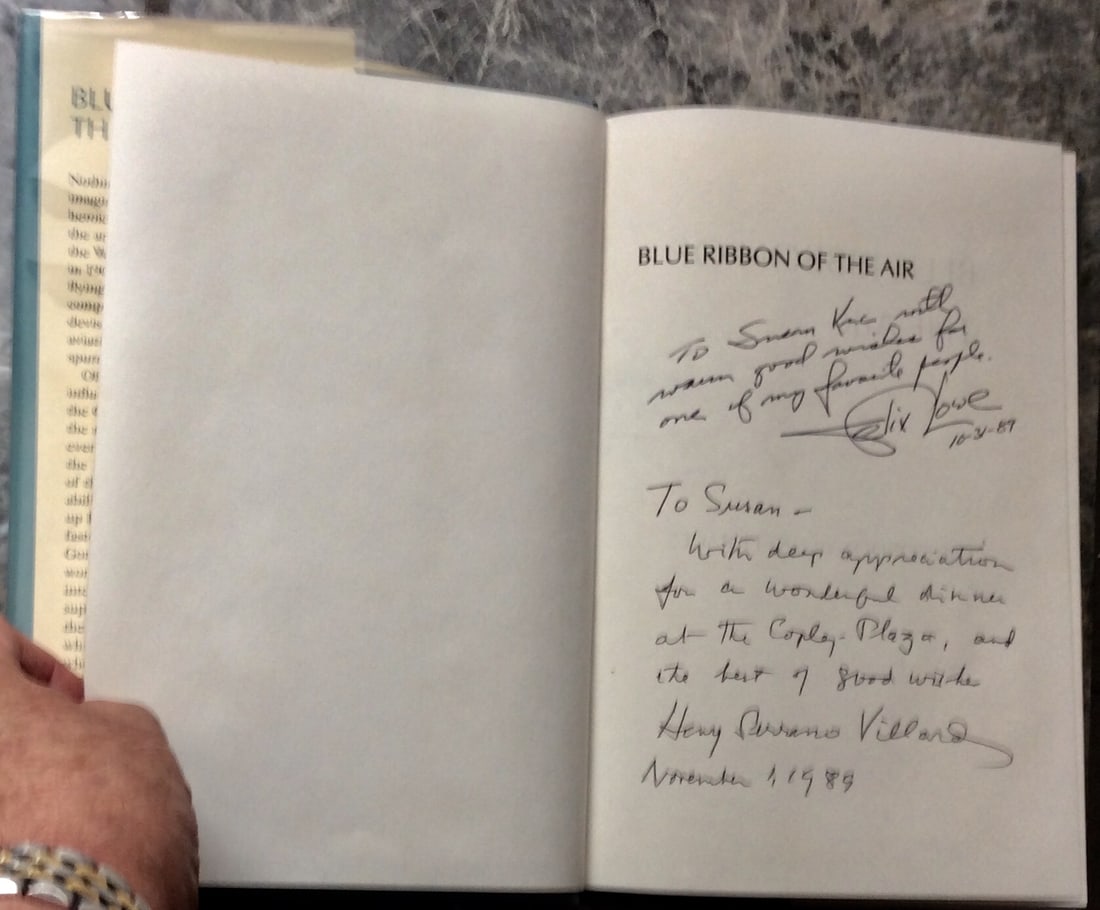 BLU
TH
Nothin
imagi
heroic
the
the
in 190
flying
comp
devis
aviat
spurr
Of
influ
the
the
ever
the
of th
abili
up
fast
Gor
wor
int
sup
the
BLUE RIBBON OF THE AIR
To Susan with
warm good wishes for
one of my favorite people.
Felix Lowe
10-31-89
To Susan –
With deep appreciation
for a wonderful dinner
at the Copley-Plaza, and
the best of good wishes
Henry Serrano Villard
November 1, 1989